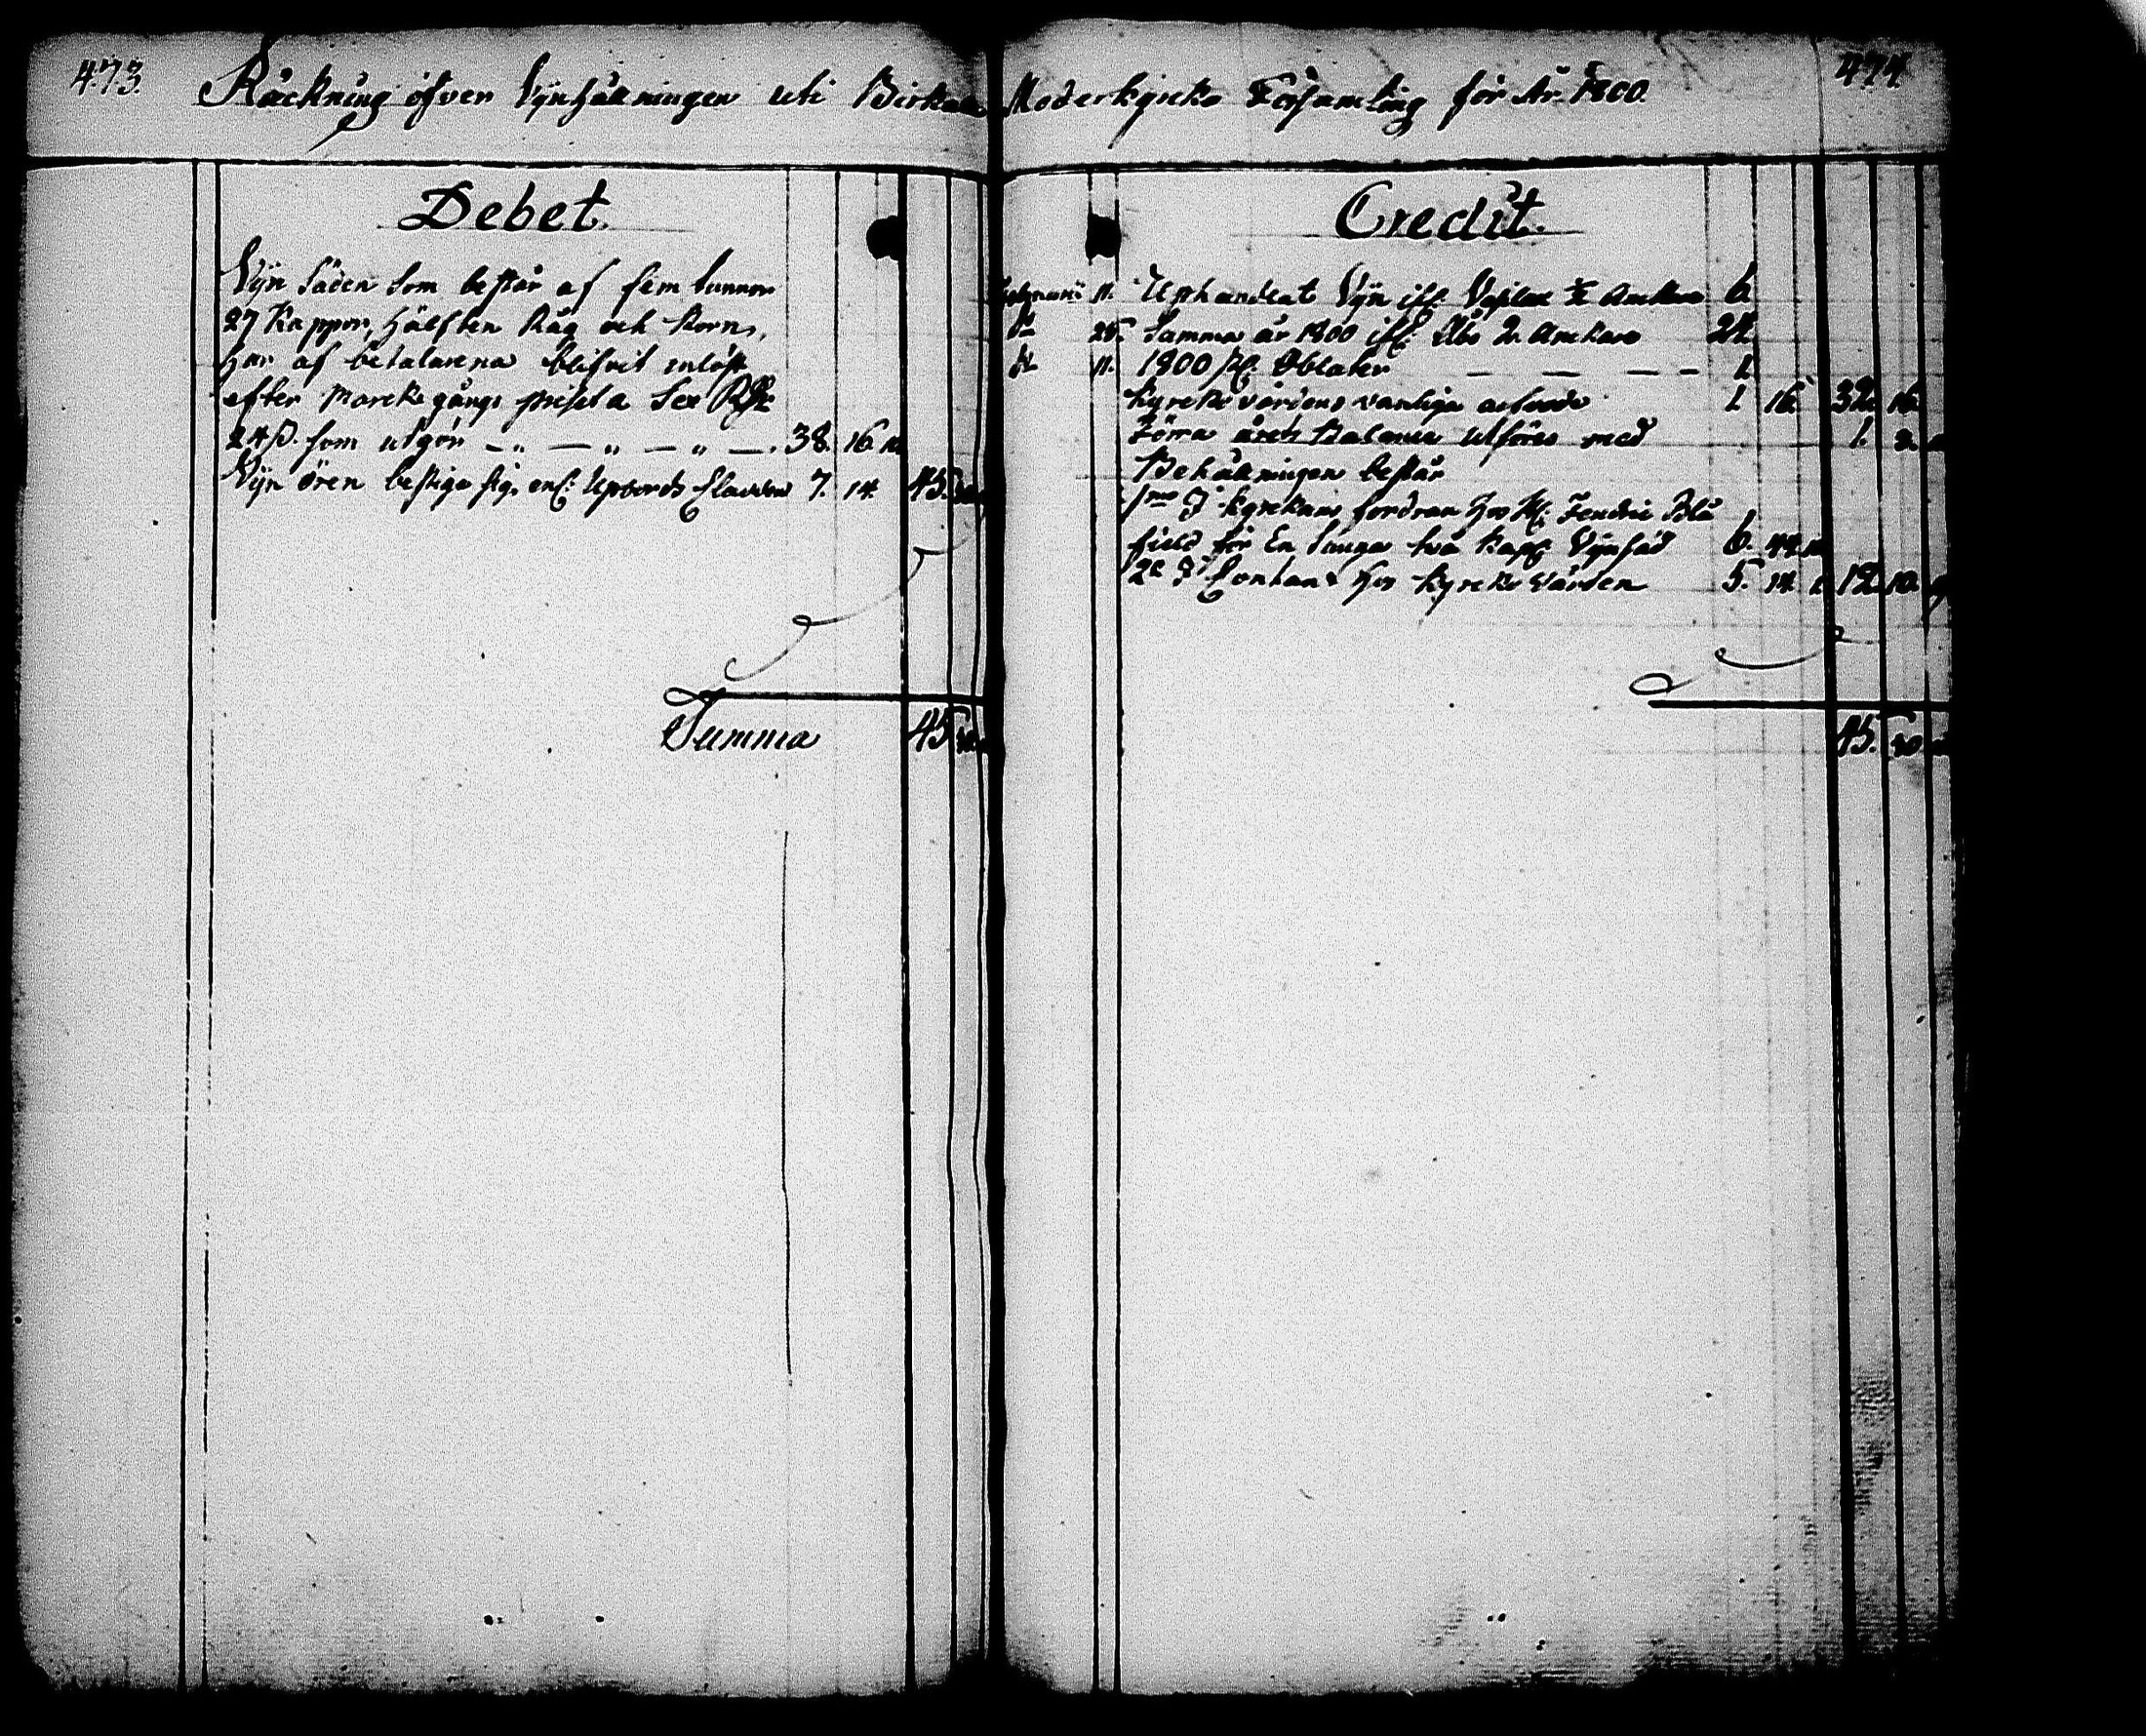 473.
Räckning öfver Vijnhållningen uti Birkala Moderkyrko Församling för År 1800.
474.
Debet.
Vijn Säden som består af fem tunnor
27 Kappor, hälften Råg och Korn,
har af betalarena blifvit inlöst
efter Markegångs priset a Sex Rdr
24 ß. som utgör — „ — „ — „ — . 38. 16.
Vijn ören bestiga sig, enl: Upbords Längden 7. 14. 45.
Summa 45. 30.
Credit.
11. Uphandlat Vijn ifr. ½ Anckare 6.
25. Samma år 1800 ifr. Åbo 2. Anckare 24.
11. 1800 Oblater — — — — 1.
Kyrko värdens vanliga arfvode 1. 16. 32. 16.
Förra årets Balance utföres med 1. 2.
Behållningen består
1mo I Kyrkans fordran hos H: Blå
field för En Tunna två Kapp: Vijnsäd 6. 44.
2o I Contant hos Kyrko värden 5. 14. 12. 10.
45. 30.